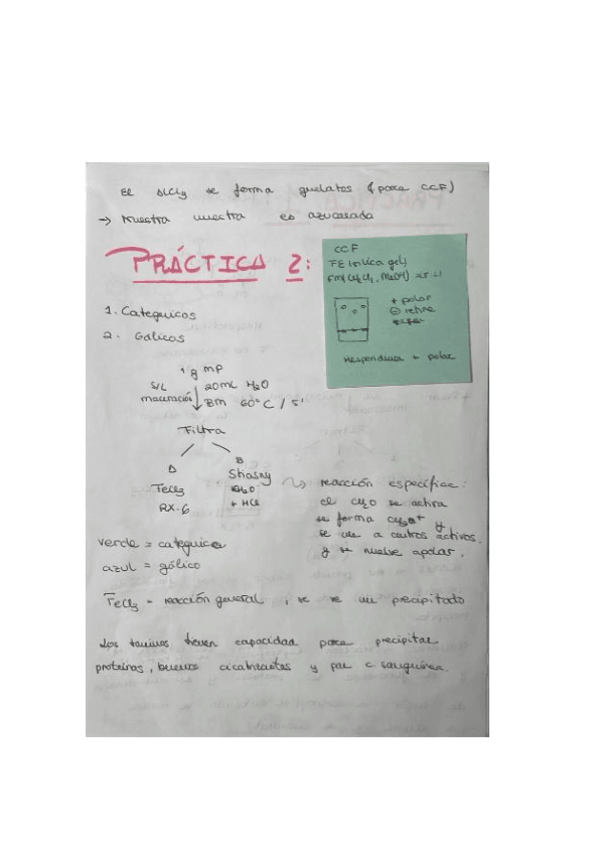 El se forma quelatos (para CCF)
→ Nuestra muestra es azucarada
PRÁCTICA 2:
CCF
FE (sílica gel)
FM (CH2Cl2, MeOH)
+ polar
⊖ retine
Hesperidina + polar
1. Catequicos
2. Gálicos
1 g MP
S/L
maceración
20mL H2O
BM 60°C / 5'
Filtra
A
FeCl3
RX. 6
B
Stiasny
+ HCl
reacción específica:
el CH2O se activa
se forma y
se une a centros activos.
y se vuelve apolar.
verde = catequico
azul = gálico
FeCl3 = reacción general, se ve un precipitado
Los taninos tienen capacidad para precipitar
proteínas, buenos cicatrizantes y par c sanguínea.